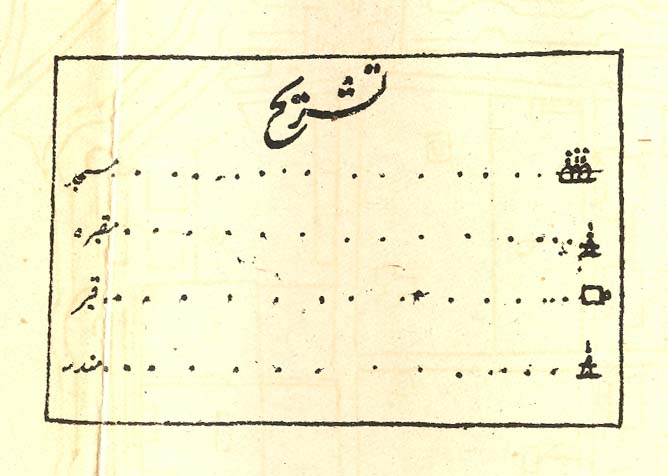 تشریح
مسجد
مقبرہ
قبر
مندر